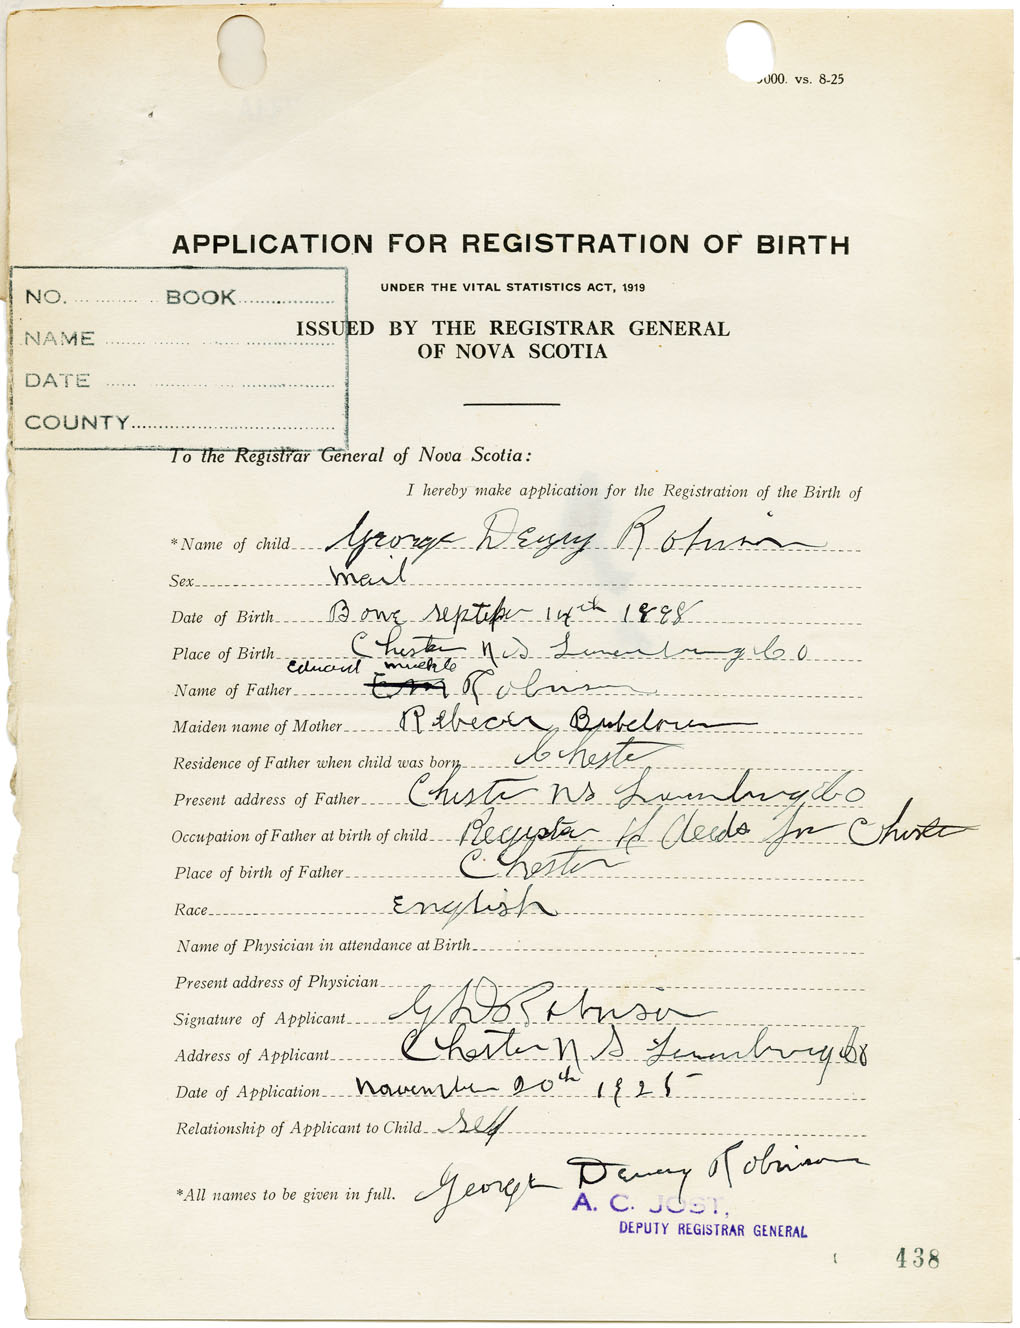 000. vs. 8-25
APPLICATION FOR REGISTRATION OF BIRTH
UNDER THE VITAL STATISTICS ACT, 1919
ISSUED BY THE REGISTRAR GENERAL
OF NOVA SCOTIA
NO. BOOK
NAME
DATE
COUNTY
To the Registrar General of Nova Scotia:
I hereby make application for the Registration of the Birth of
*Name of child George Dewey Robinson
Sex Mail
Date of Birth Bone September 14th 1898
Place of Birth Chester N S Lunenburg Co
Edward
Name of Father Robinson
Maiden name of Mother Rebecca
Residence of Father when child was born Chester
Present address of Father Chester NS Lunenburg Co
Occupation of Father at birth of child Register of deeds for Chester
Place of birth of Father Chester
Race English
Name of Physician in attendance at Birth
Present address of Physician
Signature of Applicant G D Robinson
Address of Applicant Chester N S Lunenburg Co
Date of Application November 20th 1925
Relationship of Applicant to Child self
*All names to be given in full. George Dewey Robinson
A. C. JOST,
DEPUTY REGISTRAR GENERAL
438